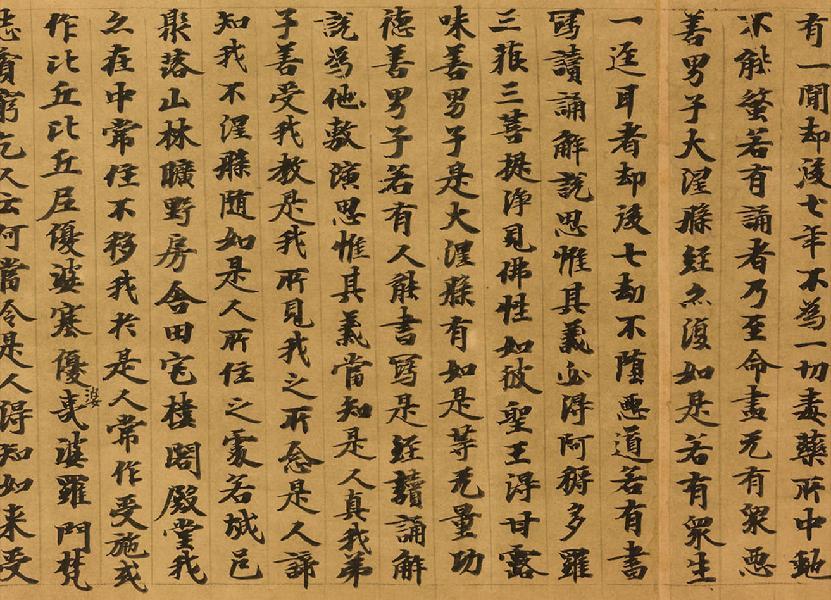 有一聞却後七年不為一切毒藥所中虵
不能螫若有誦者乃至命盡无有衆惡
善男子大涅槃經亦復如是若有衆生
一逕耳者却後七劫不墮惡道若有書
寫讀誦解說思惟其義必得阿耨多羅
三藐三菩提淨見佛性如彼聖王得甘露
味善男子是大涅槃有如是等无量功
德善男子若有人能書寫是經讀誦解
說為他敷演思惟其義當知是人真我弟
子善受我教是我所見我之所念是人諦
知我不涅槃隨如是人所住之處若城邑
聚落山林曠野房舍田宅樓閣殿堂我
亦在中常住不移我於是人常作受施或
作比丘比丘尼優婆塞優婆夷婆羅門梵
志貧窮乞人云何當令是人得知如来受